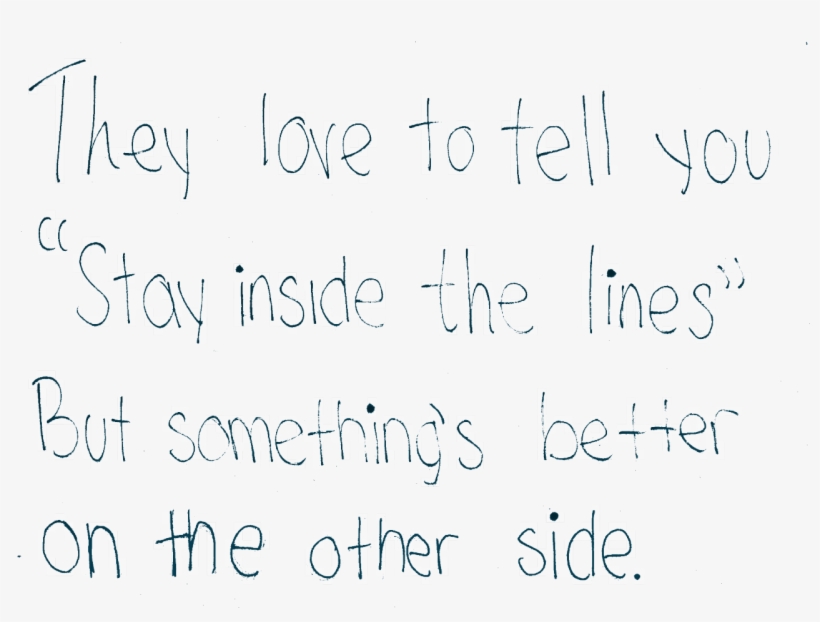 They love to tell you
“Stay inside the lines”
But something's better
on the other side.